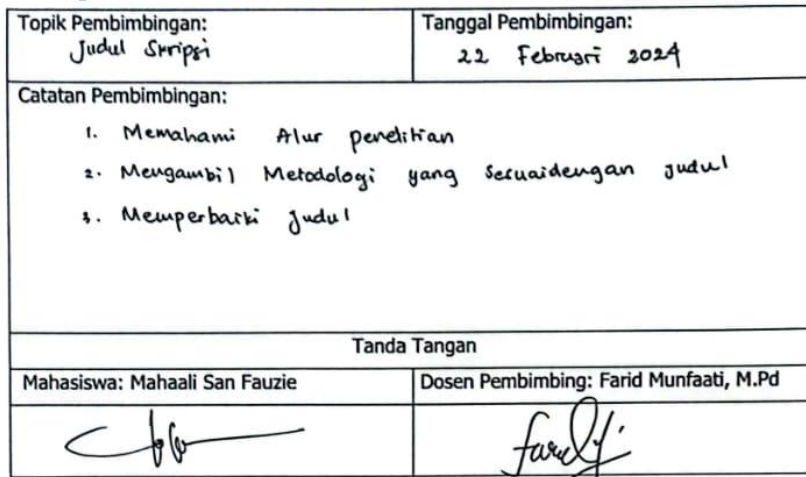 Topik Pembimbingan:
Judul Skripsi
Tanggal Pembimbingan:
22 Februari 2024
Catatan Pembimbingan:
1. Memahami Alur penelitian
2. Mengambil Metodologi yang sesuaidengan judul
3. Memperbaiki Judul
Tanda Tangan
Mahasiswa: Mahaali San Fauzie
Dosen Pembimbing: Farid Munfaati, M.Pd